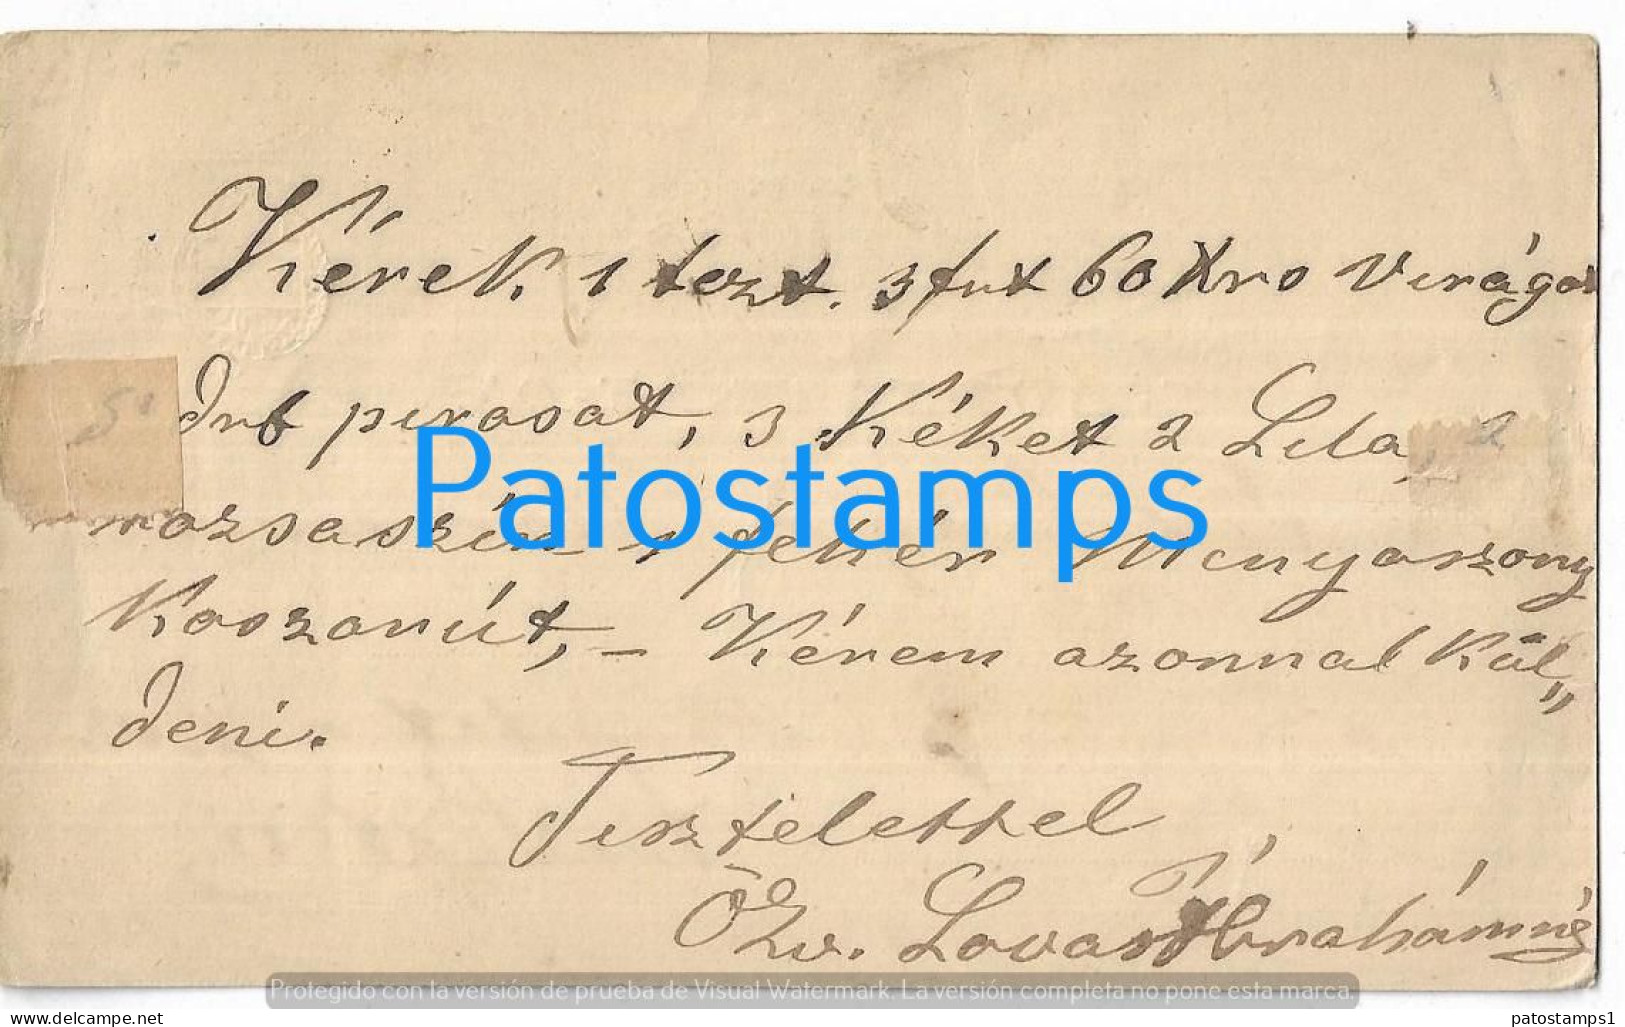 Kérek 1 tezt. 3 frt 60 Kro Virágos
drb pirosat, 3 Kéket 2 Lila, 2
rozsaszín 1 fehér Menyaszony
Koszorút, – Kérem azonnal Kül„
deni.
Tisztelettel
Özv. Lovas Ábrahámné
Patostamps
Protegido con la versión de prueba de Visual Watermark. La versión completa no pone esta marca.
www.delcampe.net
patostamps1